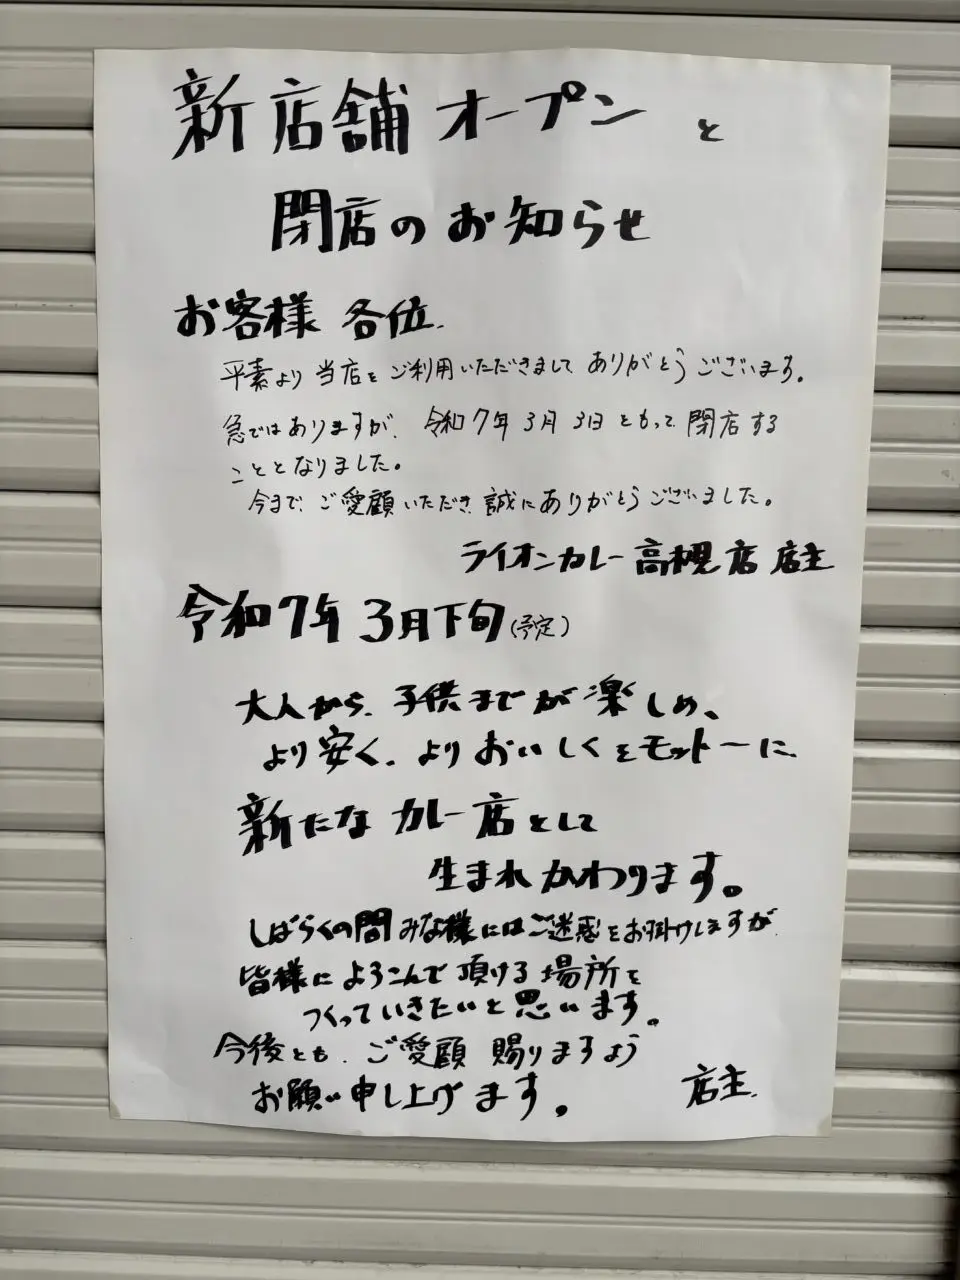 新店舗オープンと
閉店のお知らせ
お客様 各位.
平素より当店をご利用いただきまして ありがとうございます。
急ではありますが、令和7年3月3日をもって閉店する
こととなりました。
今まで、ご愛顧いただき、誠にありがとうございました。
ライオンカレー高槻店 店主
令和7年3月下旬(予定)
大人から、子供までが楽しめ、
より安く、よりおいしくをモットーに、
新たなカレー店として
生まれかわります。
しばらくの間みな様にはご迷惑をお掛けしますが
皆様によろこんで頂ける場所を
つくっていきたいと思います。
今後とも、ご愛顧 賜りますよう
お願い申し上げます。
店主.